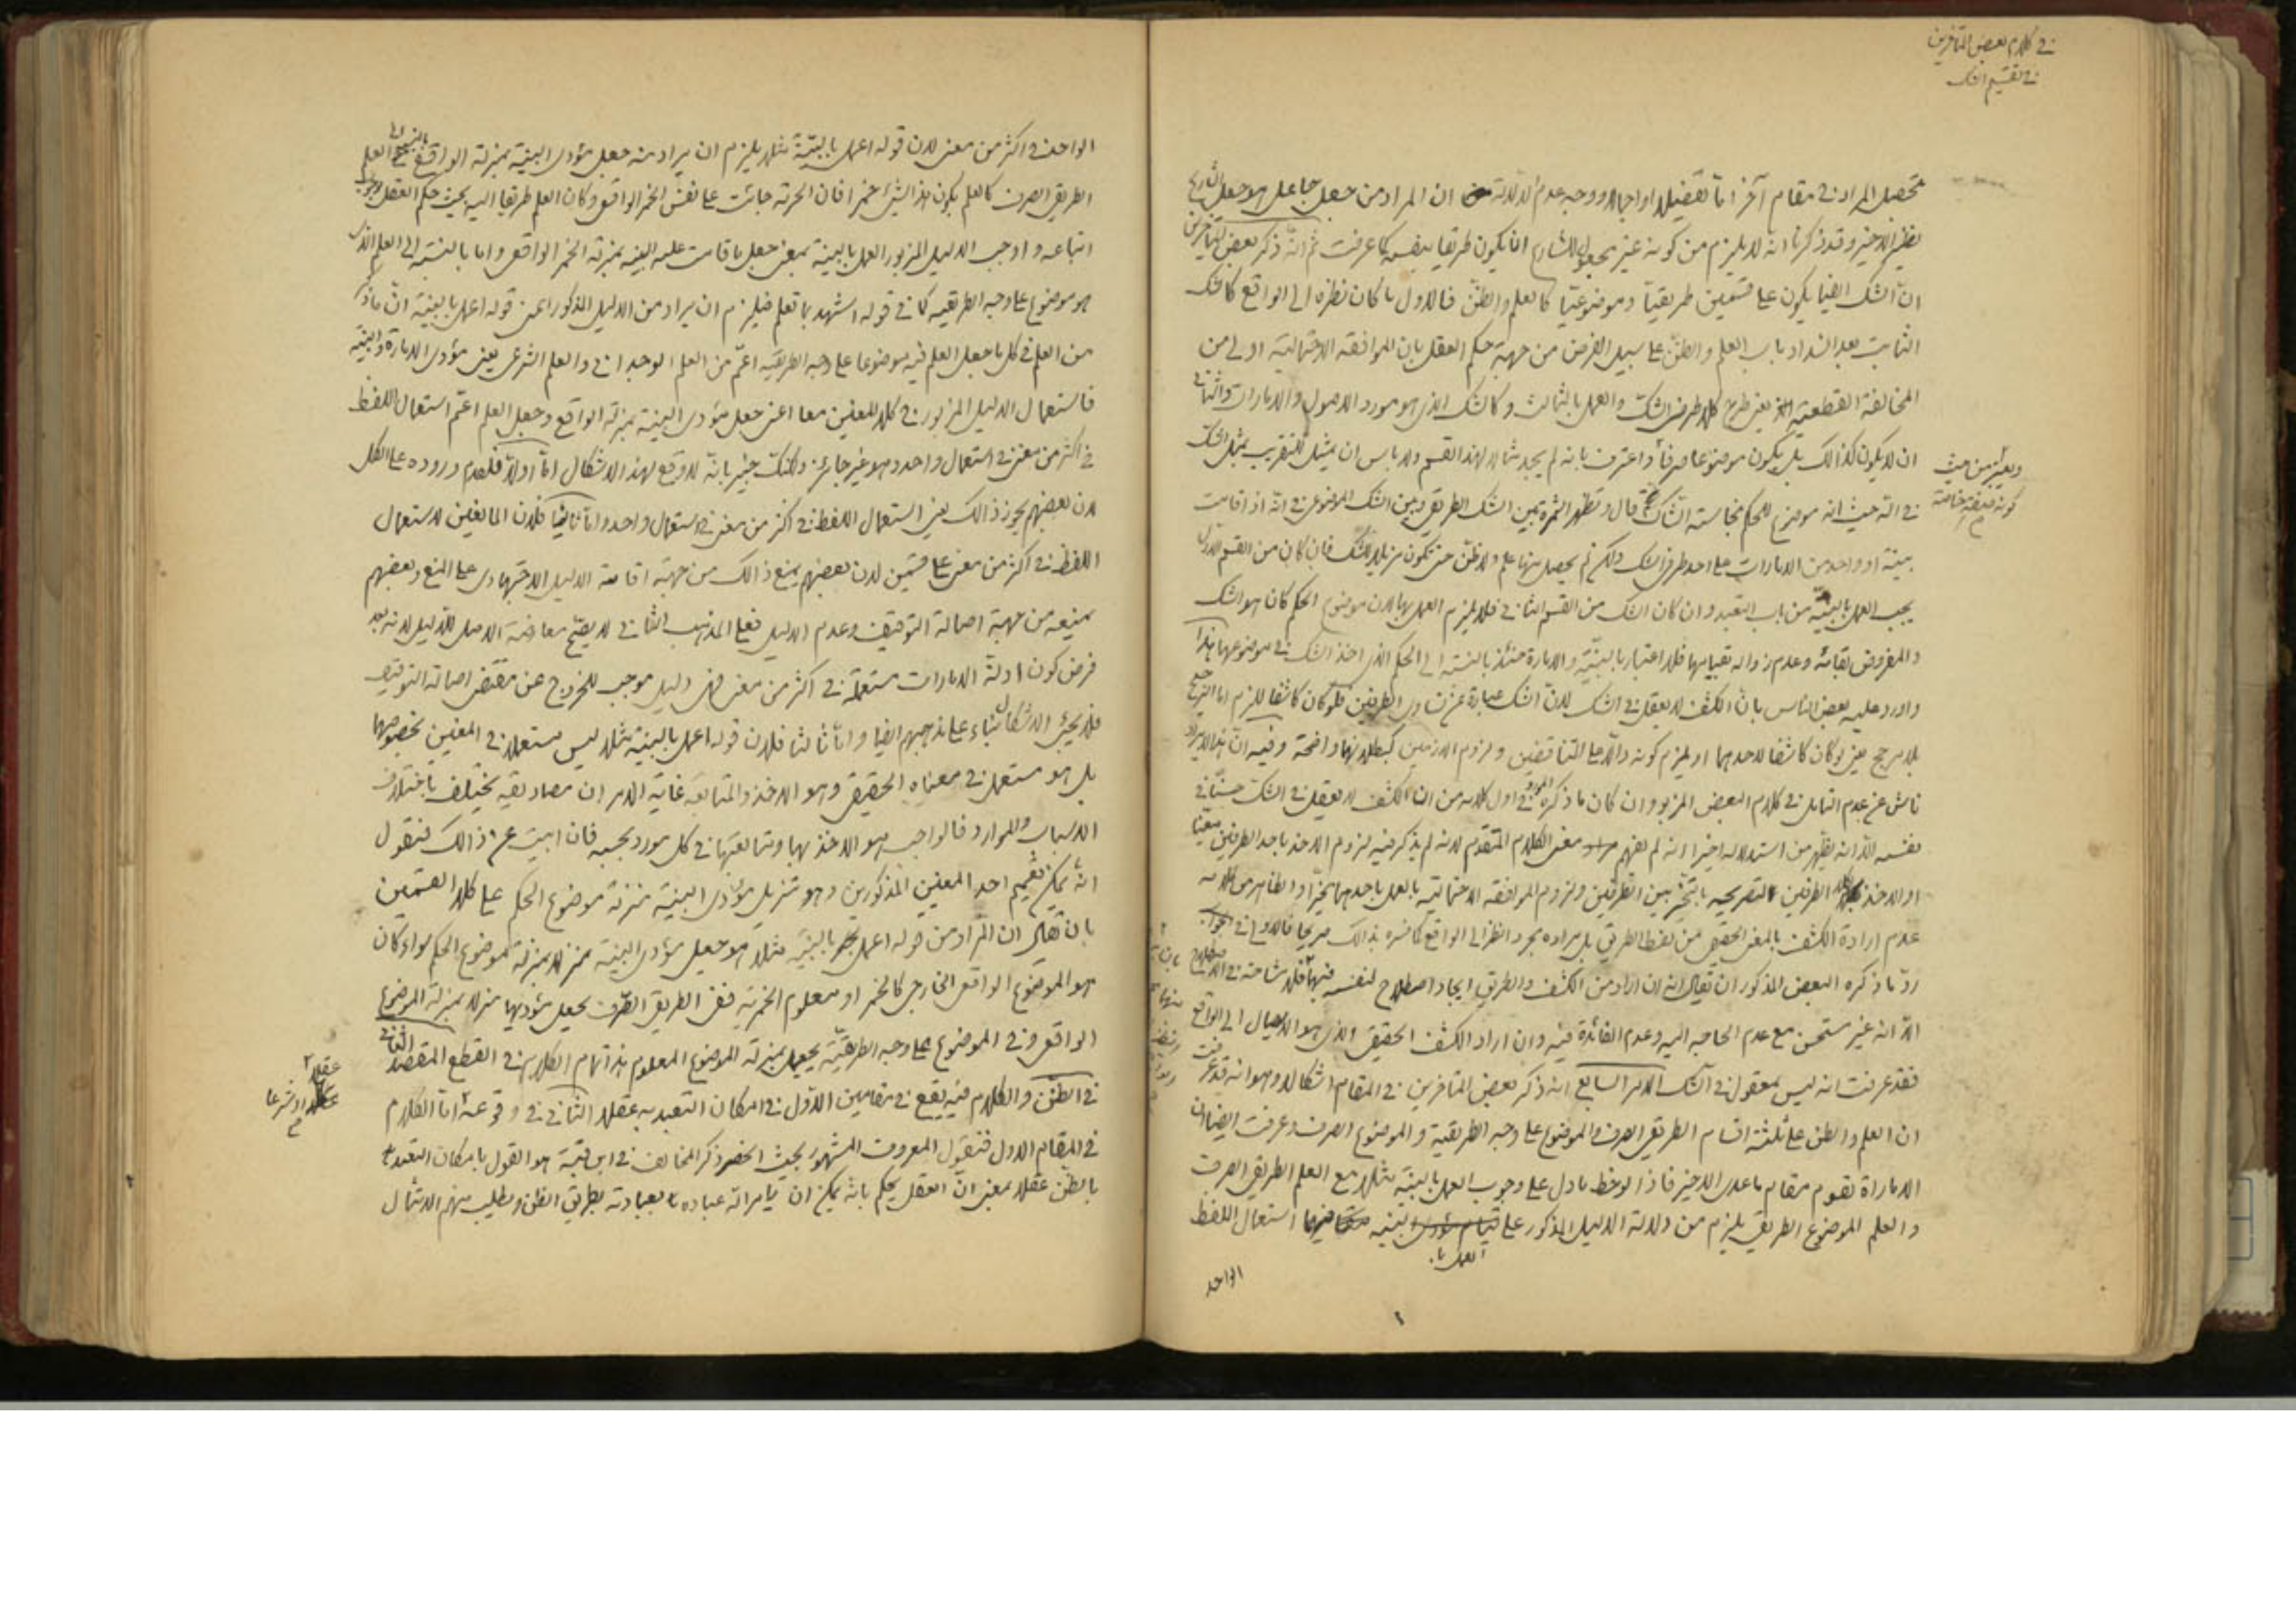 في كلام بعض المتأخرين
في تقسيم الشك
تحصيل المراد في مقام آخر اما تفصيلا او اجمالا ووجه عدم الدلالة ان المراد من جعل جاعل هو جعل الشارع
نظير الاخير وقد ذكرنا انه لا يلزم من كونه غير مجعول للشارع ان يكون طريقا بنفسه كما عرفت ثم انه ذكر بعض المتأخرين
ان الشك ايضا يكون على قسمين طريقيا وموضوعيا كالعلم والظن فالاول ما كان نظره الى الواقع كالشك
الثابت بعد انسداد باب العلم والظن على سبيل الفرض من جهة حكم العقل بان الموافقة الاحتمالية اولى من
المخالفة القطعية يعني طرح كلا طرفي الشك والعمل بالثالث وكالشك الذي هو مورد الاصول والامارات والثاني
ان لا يكون كذالك بل يكون موضوعا صرفا واعترف بانه لم يجد مثالا لهذا القسم ولا باس ان يمثل للتقريب بمثل الشك
ويعتبر من حيث
كونه صفة خاصة
في انه حيث انه موضوع للحكم بنجاسة الشاك قال وتظهر الثمرة بين الشك الطريقي وبين الشك الموضوعي في انه اذا قامت
بينة او واحد من الامارات على احد طرفي الشك ولكن لم يحصل منها علم ولا ظن حتى تكون مزيلا للشك فان كان من القسم الاول
يجب العمل بالبينة من باب التعبد وان كان الشك من القسم الثاني فلا يلزم العمل بها لان موضوع الحكم كان هو الشك
والمفروض بقائه وعدم زواله بقيامها فلا اعتبار بالبينة والامارة حينئذ بالنسبة الى الحكم الذي اخذ الشك في موضوعها هذا
واورد عليه بعض الناس بان الكشف لا يعقل في الشك لان الشك عبارة عن تساوي الطرفين فلو كان كاشفا للزم اما الترجيح
بلا مرجح يعني لو كان كاشفا لاحدهما او يلزم كونه دالا على التناقضين ولزوم اللازمين كبطلانهما واضحة وفيه ان هذا الايراد
ناش عن عدم التامل في كلام البعض المزبور وان كان ما ذكره المورد في اول كلامه من ان الكشف لا يعقل في الشك حسنا في
نفسه الا انه يظهر من استدلاله اخيرا انه لم يفهم معنى الكلام المتقدم لانه لم يذكر فيه لزوم الاخذ باحد الطرفين معينا
او الاخذ بكلا الطرفين لتصريحه بالتخير بين الطرفين ولزوم الموافقة الاحتمالية بالعمل باحدهما تخيرا والظاهر من كلامه
عدم ارادة الكشف بالمعنى الحقيقي من لفظ الطريق بل مراده مجرد النظر الى الواقع كما فسره بذالك صريحا فالاولى في جواب
رد ما ذكره البعض المذكور ان يقال انه ان اراد من الكشف والطريق ايجاد اصطلاح لنفسه فيها فلا مشاحة في الاصطلاح
الا انه غير مستحسن مع عدم الحاجة اليه وعدم الفائدة فيه وان اراد الكشف الحقيقي والذي هو الايصال الى الواقع
فقد عرفت انه ليس بمعقول في الشك الامر السابع انه ذكر بعض المتأخرين في المقام اشكالا وهو انه قد عرفت
ان العلم والظن على ثلثة اقسام الطريقي الصرف والموضوع على وجه الطريقية والموضوع الصرف وعرفت ايضا ان
الامارة تقوم مقام ما عدى الاخير فاذا لوحظ ما دل على وجوب العمل بالبينة مثلا مع العلم الطريقي الصرف
والعلم الموضوع الطريقي يلزم من دلالة الدليل المذكور على العمل بالبينة فيهما استعمال اللفظ
الواحد
الواحد في اكثر من معنى لان قوله اعمل بالبينة مثلا يلزم ان يراد منه جعل مؤدى البينة بمنزلة الواقع بالنسبة الى العلم
الطريقي الصرف كالعلم بكون هذا الشيء خمرا فان الحرمة جائت على نفس الخمر الواقعي وكان العلم طريقا اليه بحيث حكم العقل بوجوب
اتباعه واوجب الدليل المزبور العمل بالبينة بمعنى جعل ما قامت عليه البينة بمنزلة الخمر الواقعي واما بالنسبة الى العلم الذي
هو موضوع على وجه الطريقية كما في قوله اشهد بما تعلم فيلزم ان يراد من الدليل المذكور اعني قوله اعمل بالبينة ان ما ذكر
من العلم في كل ما جعل العلم فيه موضوعا على وجه الطريقية اعم من العلم الوجداني والعلم الشرعي يعني مؤدى الامارة والبينة
فاستعمال الدليل المزبور في كلا المعنين معا اعني جعل مؤدى البينة بمنزلة الواقع وجعل العلم اعم استعمال اللفظ
في اكثر من معنى في استعمال واحد وهو غير جائز ولكنك خبير بانه لا وقع لهذا الاشكال اما اولا فلعدم وروده على الكل
لان بعضهم يجوز ذالك يعني استعمال اللفظ في اكثر من معنى في استعمال واحد واما ثانيا فلان المانعين لاستعمال
اللفظ في اكثر من معنى على قسمين لان بعضهم يمنع ذالك من جهة اقامة الدليل الاجتهادي على المنع وبعضهم
يمنعه من جهة اصالة التوقيف وعدم الدليل فعلى المذهب الثاني لا يصح معارضة الاصل للدليل لانه بعد
فرض كون ادلة الامارات مستعملة في اكثر من معنى فهي دليل موجب للخروج عن مقتضى اصالة التوقيف
فلا يجري الاشكال بناء على مذهبهم ايضا واما ثالثا فلان قوله اعمل بالبينة مثلا ليس مستعملا في المعنين بخصوصهما
بل هو مستعمل في معناه الحقيقي وهو الاخذ والمتابعة غاية الامر ان مصاديقه يختلف باختلاف
الاسباب والموارد فالواجب هو الاخذ بها ومتابعتها في كل مورد بحسبه فان ابيت عن ذالك فنقول
انه يمكن تعميم احد المعنين المذكورين وهو تنزيل مؤدى البينة منزلة موضوع الحكم على كلا القسمين
بان يقال ان المراد من قوله اعمل بالبينة مثلا هو جعل مؤدى البينة منزلا بمنزلة موضوع الحكم سواء كان
هو الموضوع الواقعي الخارجي كالخمر او معلوم الخمرية ففي الطريق الصرف يجعل مؤديها منزلا بمنزلة الموضوع
الواقعي وفي الموضوع على وجه الطريقية يجعل بمنزلة الموضوع المعلوم هذا تمام الكلام في القطع المقصد الثاني
في الظن والكلام فيه يقع في مقامين الاول في امكان التعبد به عقلا الثاني في وقوعه اما الكلام
عقلا
او شرعا
في المقام الاول فنقول المعروف المشهور بحيث انحصر ذكر المخالف في ابن قبة هو القول بامكان التعبد
بالظن عقلا بمعنى ان العقل يحكم بانه يمكن ان يامر الله عباده بعبادته بطريق الظن ويطلب منهم الامتثال